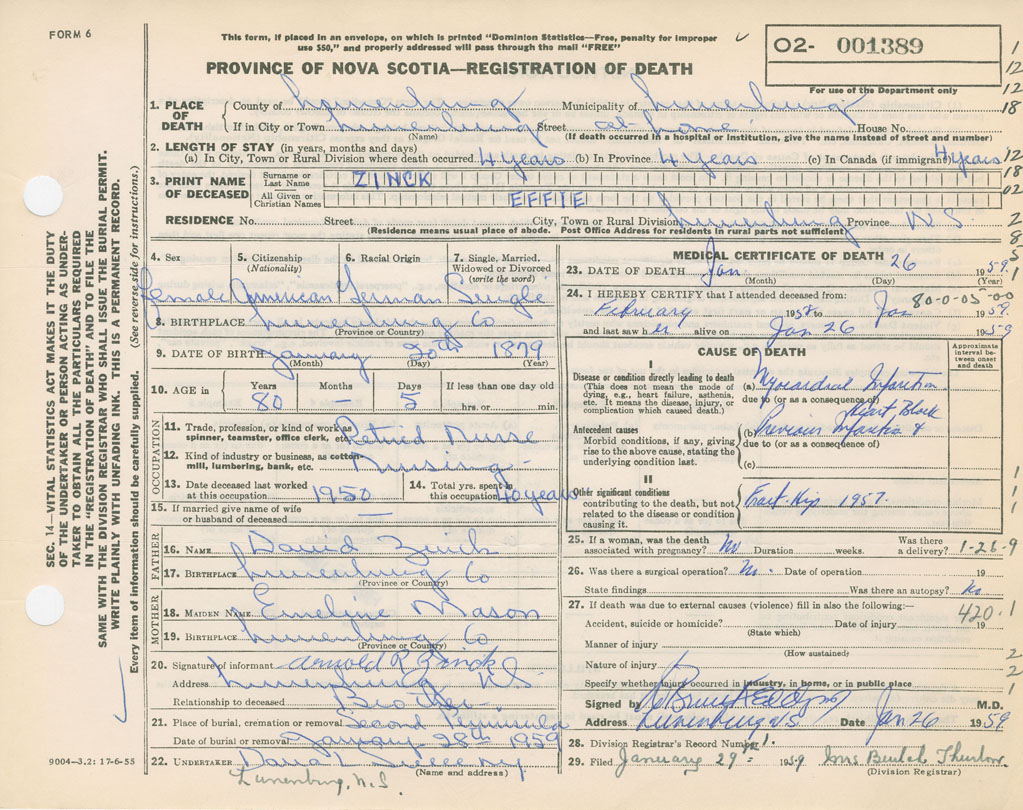 FORM 6
This form, if placed in an envelope, on which is printed "Dominion Statistics—Free, penalty for improper
use $50," and properly addressed will pass through the mail "FREE"
02- 001389
For use of the Department only
PROVINCE OF NOVA SCOTIA—REGISTRATION OF DEATH
1. PLACE OF DEATH County of Lunenburg Municipality of Lunenburg
If in City or Town Lunenburg Street at home House No.
(Name) (If death occurred in a hospital or institution, give the name instead of street and number)
2. LENGTH OF STAY (in years, months and days)
(a) In City, Town or Rural Division where death occurred 4 years (b) In Province 4 years (c) In Canada (if immigrant) 4 years
3. PRINT NAME OF DECEASED Surname or Last Name ZINCK
All Given or Christian Names EFFIE
RESIDENCE No. Street City, Town or Rural Division Lunenburg Province N.S.
(Residence means usual place of abode. Post Office Address for residents in rural parts not sufficient)
4. Sex 5. Citizenship (Nationality) 6. Racial Origin 7. Single, Married, Widowed or Divorced (write the word)
female American German Single
8. BIRTHPLACE Lunenburg Co
(Province or Country)
9. DATE OF BIRTH January 20th 1879
(Month) (Day) (Year)
10. AGE in Years Months Days If less than one day old
80 — 5 hrs. or min.
OCCUPATION
11. Trade, profession, or kind of work as spinner, teamster, office clerk, etc. Retired Nurse
12. Kind of industry or business, as cotton-mill, lumbering, bank, etc. Nursing
13. Date deceased last worked at this occupation 1950 14. Total yrs. spent in this occupation 40 years
15. If married give name of wife or husband of deceased —
FATHER
16. NAME David Zinck
17. BIRTHPLACE Lunenburg Co
(Province or Country)
MOTHER
18. MAIDEN NAME Emeline Mason
19. BIRTHPLACE Lunenburg Co
(Province or Country)
20. Signature of informant Arnold R Zinck
Address Lunenburg N.S.
Relationship to deceased Brother
21. Place of burial, cremation or removal Second Peninsula
Date of burial or removal January 28th 1959
22. UNDERTAKER
(Name and address)
Lunenburg, N.S.
9004—3.2: 17-6-55
MEDICAL CERTIFICATE OF DEATH
23. DATE OF DEATH Jan 26 1959.
(Month) (Day) (Year)
80-0-05-00
24. I HEREBY CERTIFY that I attended deceased from:
February 1958 to Jan 1959.
and last saw her alive on Jan 26 1959
CAUSE OF DEATH
Approximate interval between onset and death
I
Disease or condition directly leading to death
(This does not mean the mode of dying, e.g., heart failure, asthenia, etc. It means the disease, injury, or complication which caused death.)
(a) Myocardial Infarction
due to (or as a consequence of)
Heart Block
Antecedent causes
Morbid conditions, if any, giving rise to the above cause, stating the underlying condition last.
(b) Previous Infarction &
due to (or as a consequence of)
(c)
II
Other significant conditions
contributing to the death, but not related to the disease or condition causing it.
Fract. Hip 1957.
25. If a woman, was the death associated with pregnancy? No Duration weeks. Was there a delivery? 1-28-9
26. Was there a surgical operation? No. Date of operation 19
State findings Was there an autopsy? No
27. If death was due to external causes (violence) fill in also the following:—
420.1
Accident, suicide or homicide? Date of injury 19
(State which)
Manner of injury
(How sustained)
Nature of injury
Specify whether injury occurred in industry, in home, or in public place
Signed by M.D.
Address Lunenburg NS Date Jan 26 1959.
28. Division Registrar's Record Number 1.
29. Filed January 29th 1959 Mrs Beulah Thurlow
(Division Registrar)
SEC. 14—VITAL STATISTICS ACT MAKES IT THE DUTY
OF THE UNDERTAKER OR PERSON ACTING AS UNDER-
TAKER TO OBTAIN ALL THE PARTICULARS REQUIRED
IN THE "REGISTRATION OF DEATH" AND TO FILE THE
SAME WITH THE DIVISION REGISTRAR WHO SHALL ISSUE THE BURIAL PERMIT.
WRITE PLAINLY WITH UNFADING INK. THIS IS A PERMANENT RECORD.
Every item of information should be carefully supplied. (See reverse side for instructions.)
1
12
12
18
12
18
02
2
8
5
1
1
1
1
1
2
2
1